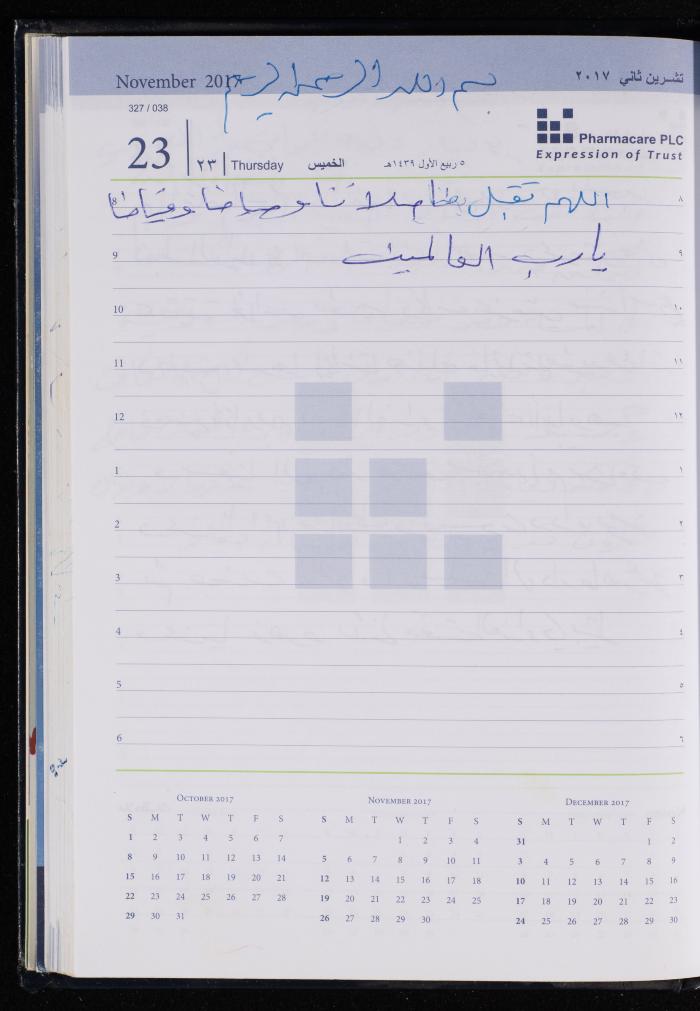 November 2017 تشرين ثاني ٢٠١٧
بسم الله الرحمن الرحيم
327 / 038
23 ٢٣ Thursday الخميس ٥ ربيع الأول ١٤٣٩هـ
Pharmacare PLC
Expression of Trust
8 اللهم تقبل صلاتنا وصيامنا وقيامنا ٨
9 يا رب العالمين ٩
10 ١٠
11 ١١
12 ١٢
1 ١
2 ٢
3 ٣
4 ٤
5 ٥
6 ٦
OCTOBER 2017
S M T W T F S
1 2 3 4 5 6 7
8 9 10 11 12 13 14
15 16 17 18 19 20 21
22 23 24 25 26 27 28
29 30 31
NOVEMBER 2017
S M T W T F S
1 2 3 4
5 6 7 8 9 10 11
12 13 14 15 16 17 18
19 20 21 22 23 24 25
26 27 28 29 30
DECEMBER 2017
S M T W T F S
31 1 2
3 4 5 6 7 8 9
10 11 12 13 14 15 16
17 18 19 20 21 22 23
24 25 26 27 28 29 30